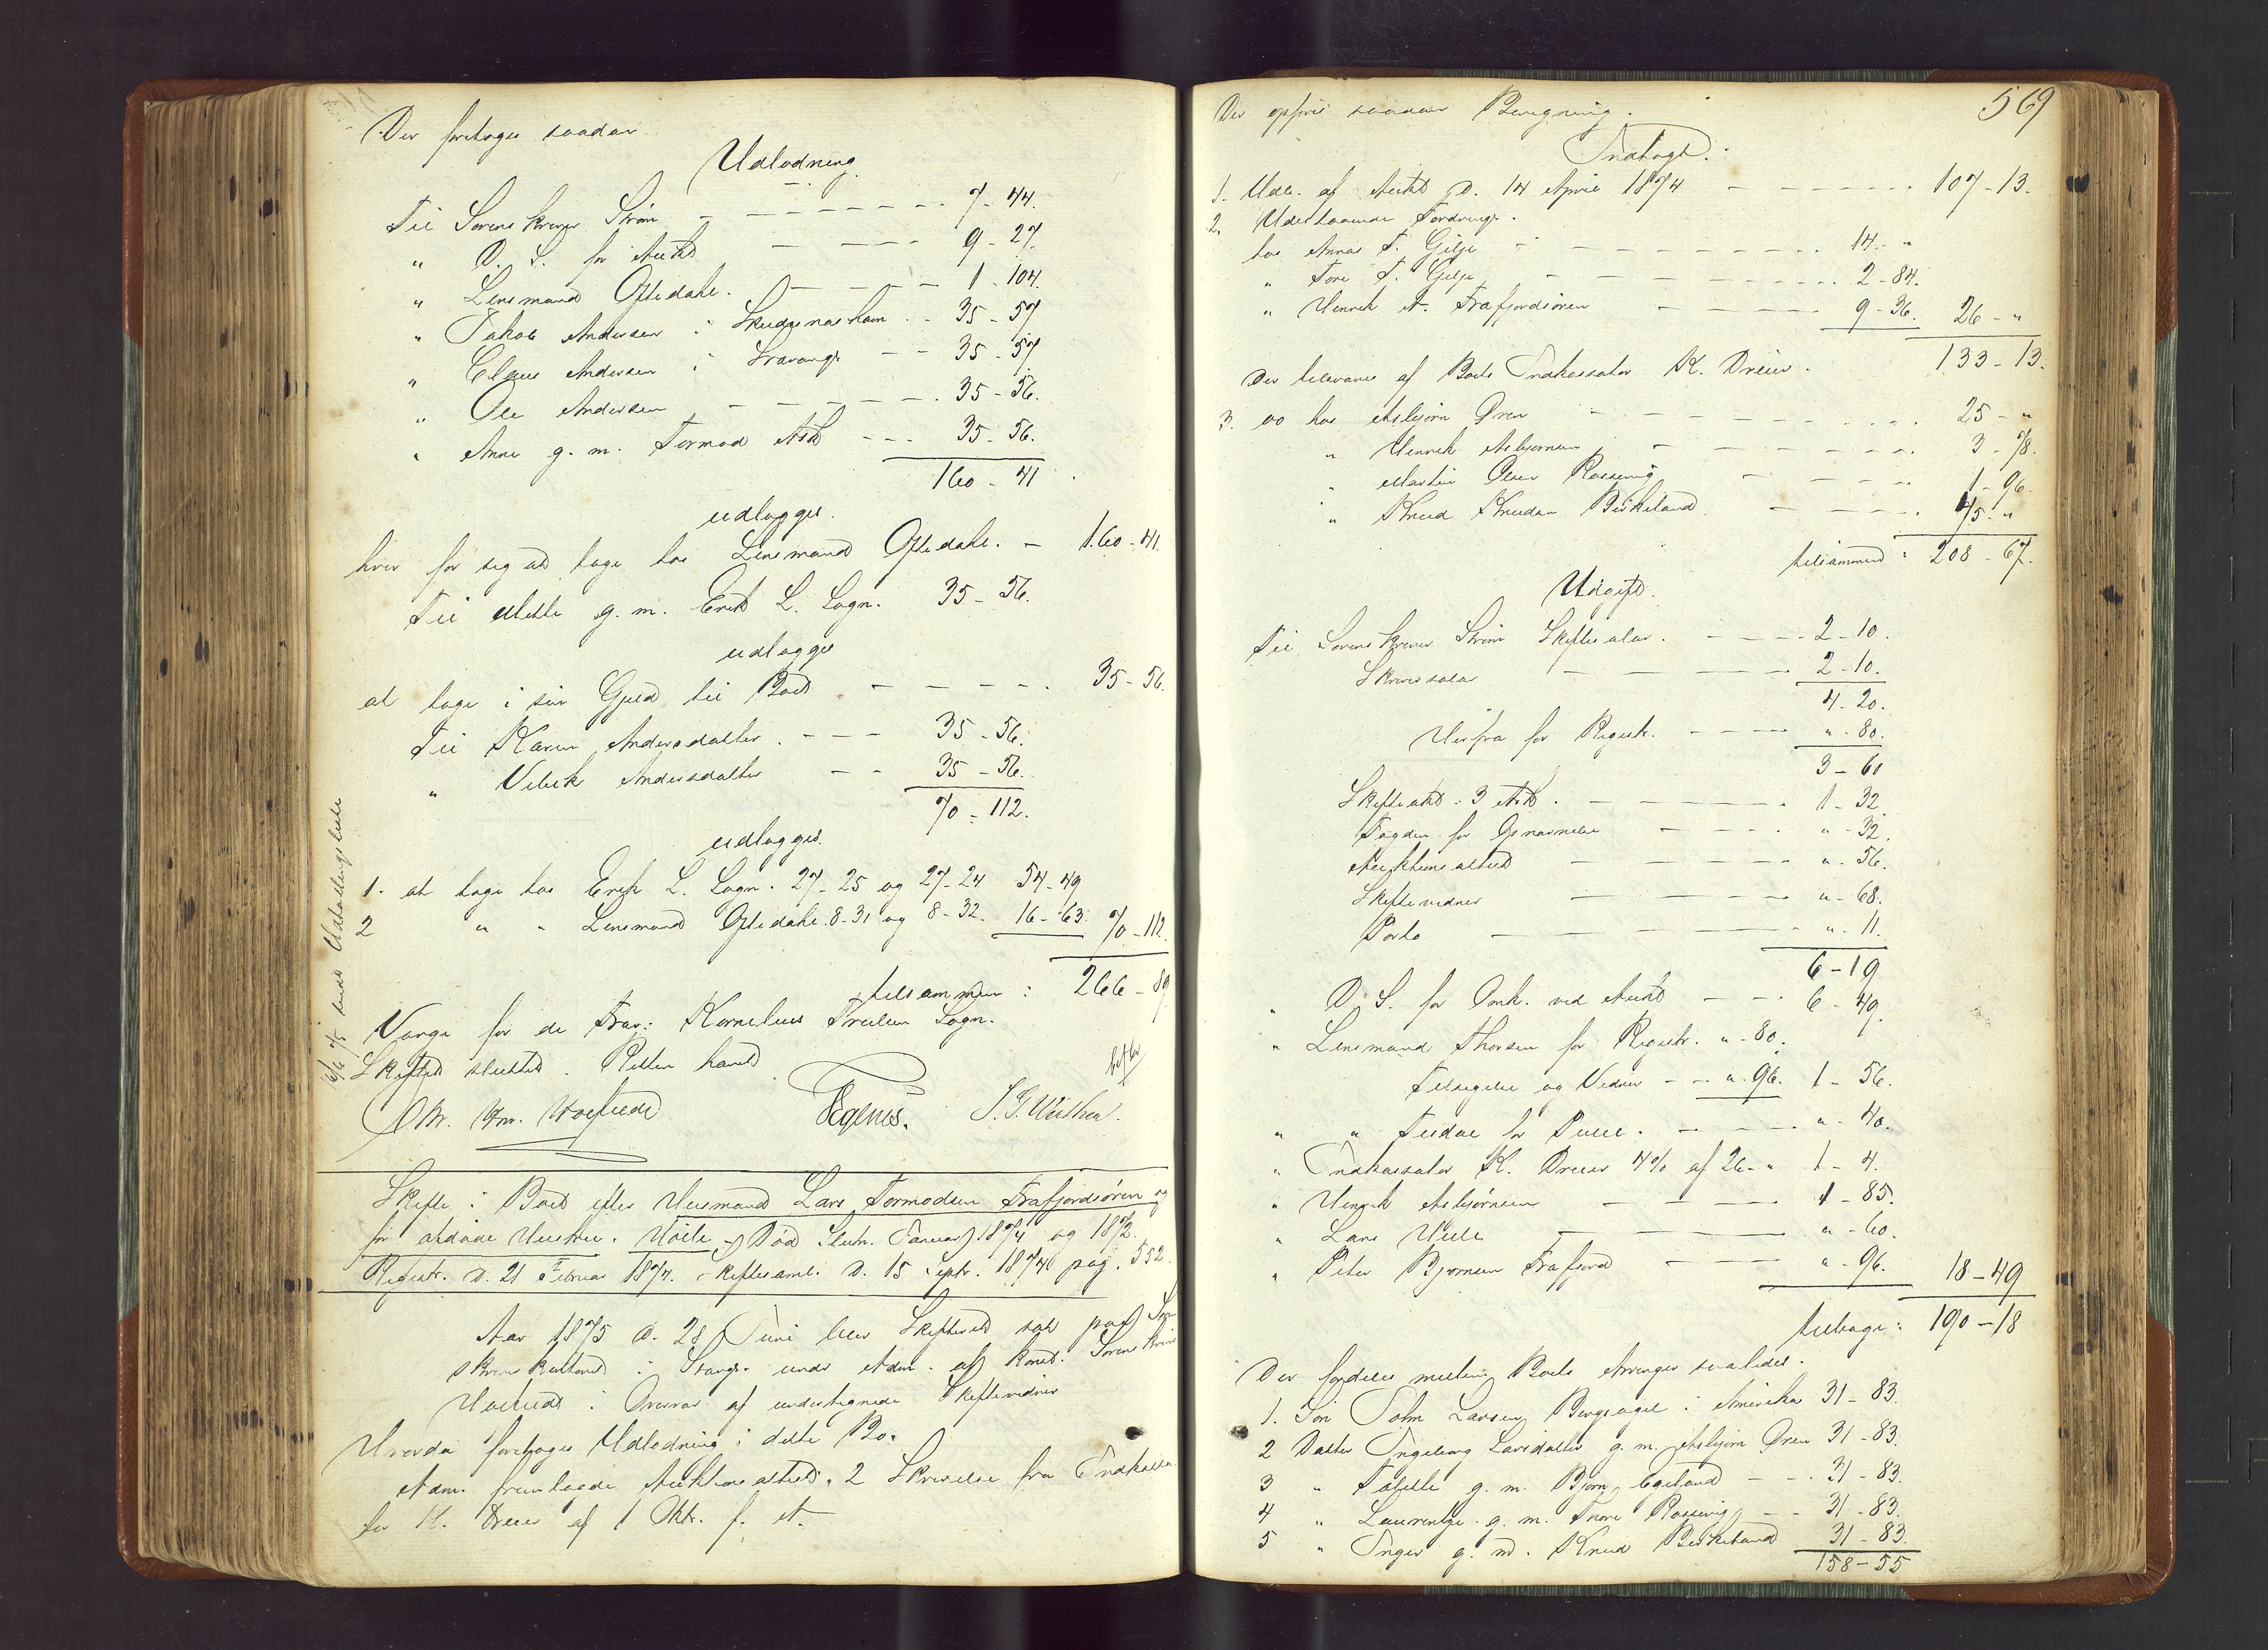 Der foretoges saadan
Udlodning
Til Sorenskriver Strøm - - - - - - - - 7 - 44.
" D. S. for Auktd - - - - 9 - 27.
" Lensmand Oftedahl. - - - - 1 - 104.
" Jakob Andersen i Skudesneshavn - - 35 - 57
" Claus Andersen i Stavangr - - 35 - 57
" Ole Andersen - - - - - - 35 - 56.
" Anne g. m. Tormod - - - 35 - 56.
160 - 41
udlægges.
hver for sig at tage hos Lensmand Oftedahl. - 160 - 41.
Til Mette g. m. Erik L. Sogn. 35 - 56.
udlægges
at tage i sin Gjæld til Boet - - - - - 35 - 56.
Til Karen Andersdatter. - - - 35 - 56.
" Vibeke Andersdatter - - 35 - 56.
70 - 112.
udlægges.
1. at tage hos Erik L. Sogn. 27 - 25 og 27 - 24 54 - 49
2 " " Lensmand Oftedahl. 8 - 31 og 8 - 32. 16 - 63. 70 - 112.
tilsammen : 266 - 89
Værge for de Frav: Kornelius Sogn.
Skiftet sluttet. Retten hævet
Egenes.
Skifte i Boet efter Husmand Lars Tormodsen Frafjordsøren og
før afdøde Hustru. Død Slutn. Januar 1874 og 1872.
Registr. d. 21 Februar 1874. Skiftesaml. d. 15 Septr. 1874 pag. 552.
Aar 1875 d. 28 Juni blev Skifteret sat paa Soren
skriverkontoret i Stavgr. under Adm. af konst. Sorenskriver
i Overvær af undertegnede Skiftevidner
Hvorda foretoges Udlodning i dette Bo.
Adm. fremlagde Auktionsattest, 2 Skrivelse fra Indkassa
tor K. Dreier af 1 Oktr. f. A.
6/6 75 Udbetalingsliste
569
Der opføres saadan Beregning.
Indtægt.
1. Udb. af Auktd d. 14 April 1874 - - - - - - - 107 - 13.
2. Udestaaende Fordringr.
hos Annas T. Gilje - - - - - - - - 14 - "
" Tore T. Gilje - - - - - - - 2 - 84.
" Henrik A. Frafjordsøren - - - - - 9 - 36. 26 - "
Der tilsvares af Boets Indkassator K. Dreier. 133 - 13.
3. do hos Asbjørn Øren - - - - - - - - 25 - "
" Henrik Asbjørnsen - - - - - - - 3 - 78.
" Martin Olsen Rossevig - - - - 1 - 96.
" Knud Knudsen Birkeland - - - - 45 - "
tilsammen : 208 - 67.
Udgift.
Til Sorenskriver Strøm Skiftesalær. - - - - 2 - 10.
Skriversalær - - - - - 2 - 10.
4 - 20.
Herfra for Registr. - - - - " - 80.
3 - 60
Skifteaktd : 3 Ark. - - - - - 1 - 32
Fogden for Opnævnelse - - - - " - 32.
Auktionsattest - - - - " - 56.
Skiftevidner - - - - - " - 68.
Porto - - - - - - - " - 11.
6 - 19
" D. S. for Omk. ved Auktd - - - 6 - 49.
" Lensmand Thorsen for Registr. " - 80.
Tilsigelse og Vidner - - " - 96. 1 - 56.
" " - - - - " - 40.
" Indkassator K. Dreier 4% af 26 - " 1 - 4.
" Henrik Asbjørnsen - - - - 1 - 85.
" Lars - - - - - " - 60.
" Peter Bjørnsen Frafjord - - - " - 96. 18 - 49
tilbage : 190 - 18
Der fordeles mellem Boets Arvinger saaledes.
1. Søn John Larsen i Amerika 31 - 83.
2 Datter Ingeborg Larsdatter g. m. Asbjørn Øren 31 - 83.
3 " g. m. Bjørn Egeland - - - 31 - 83.
4 " Laurentze g. m. Thore Rossevig - - 31 - 83.
5 " Inger g. m. Knud Birkeland 31 - 83.
158 - 55